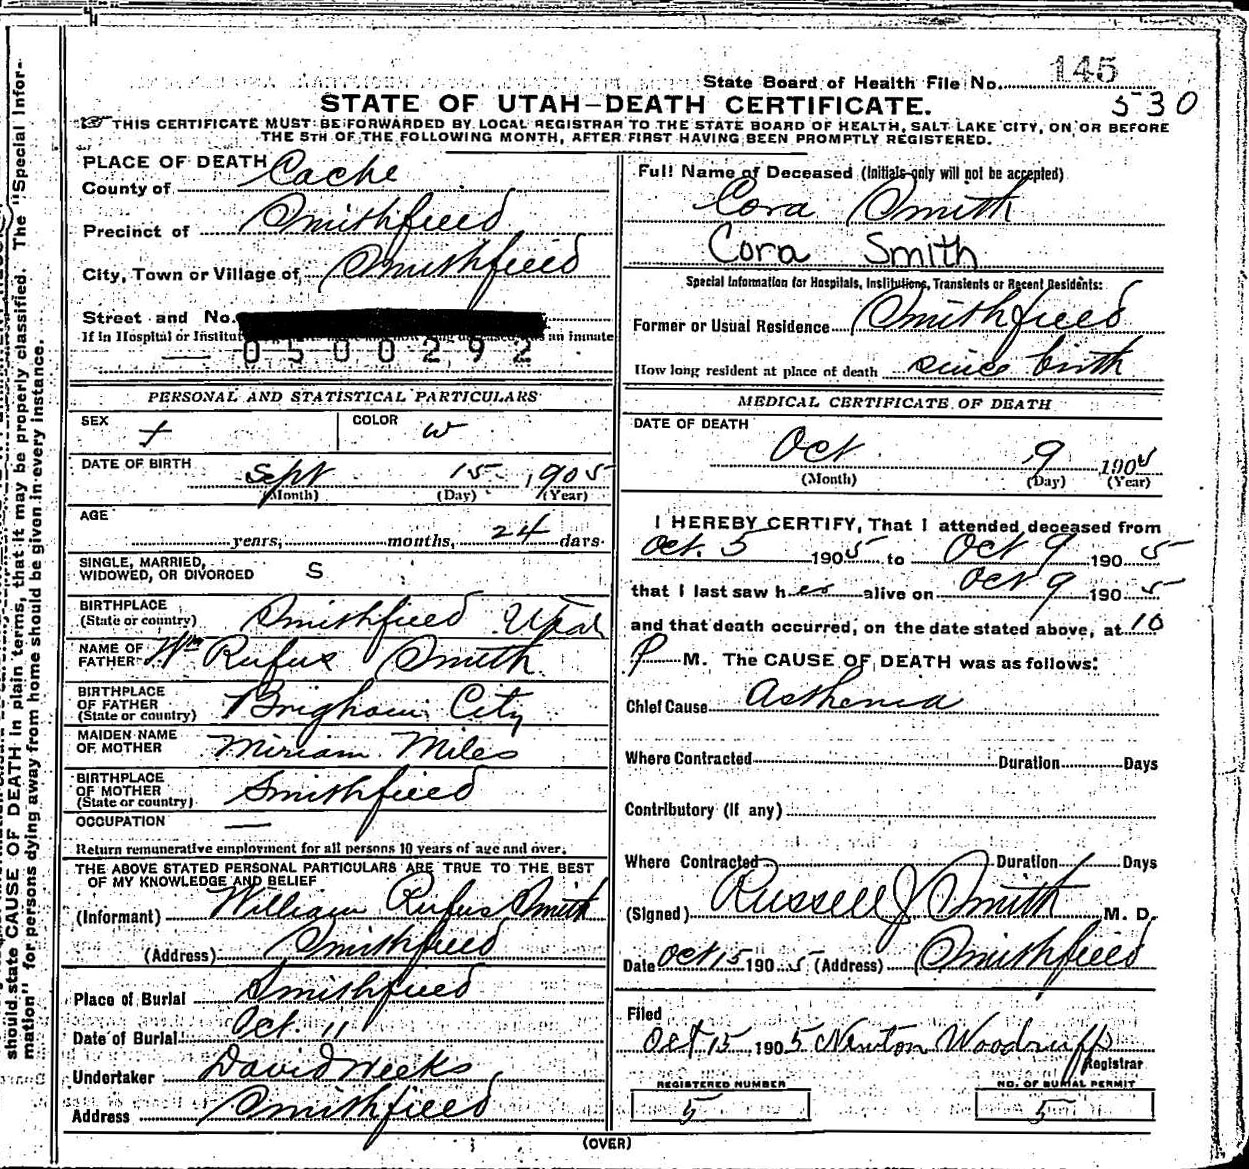 State Board of Health File No. 145
530
STATE OF UTAH—DEATH CERTIFICATE.
THIS CERTIFICATE MUST BE FORWARDED BY LOCAL REGISTRAR TO THE STATE BOARD OF HEALTH, SALT LAKE CITY, ON OR BEFORE
THE 5TH OF THE FOLLOWING MONTH, AFTER FIRST HAVING BEEN PROMPTLY REGISTERED.
PLACE OF DEATH
County of Cache
Precinct of Smithfield
City, Town or Village of Smithfield
Street and No.
If in Hospital or an inmate
— 0500292
PERSONAL AND STATISTICAL PARTICULARS
SEX f COLOR w
DATE OF BIRTH Sept 15 1905
(Month) (Day) (Year)
AGE
years, months, 24 days.
SINGLE, MARRIED,
WIDOWED, OR DIVORCED S
BIRTHPLACE
(State or country) Smithfield Utah
NAME OF
FATHER Wm Rufus Smith
BIRTHPLACE
OF FATHER
(State or country) Brigham City
MAIDEN NAME
OF MOTHER Miriam Miles
BIRTHPLACE
OF MOTHER
(State or country) Smithfield
OCCUPATION —
Return remunerative employment for all persons 10 years of age and over.
THE ABOVE STATED PERSONAL PARTICULARS ARE TRUE TO THE BEST
OF MY KNOWLEDGE AND BELIEF
(Informant) William Rufus Smith
(Address) Smithfield
Place of Burial Smithfield
Date of Burial Oct. 11
Undertaker David Weeks
Address Smithfield
Full Name of Deceased (Initials only will not be accepted)
Cora Smith
Cora Smith
Special Information for Hospitals, Institutions, Transients or Recent Residents:
Former or Usual Residence Smithfield
How long resident at place of death since birth
MEDICAL CERTIFICATE OF DEATH
DATE OF DEATH
Oct 9 1905
(Month) (Day) (Year)
I HEREBY CERTIFY, That I attended deceased from
Oct. 5 1905 to Oct 9 1905
that I last saw her alive on Oct 9 1905
and that death occurred, on the date stated above, at 10
P M. The CAUSE OF DEATH was as follows:
Chief Cause Asthenia
Where Contracted Duration Days
Contributory (If any)
Where Contracted Duration Days
(Signed) Russell J Smith M. D.
Date Oct 15 1905 (Address) Smithfield
Filed
Oct 15 1905 Newton Woodruff
Registrar
REGISTERED NUMBER
5
NO. OF BURIAL PERMIT
5
(OVER)
should state CAUSE OF DEATH in plain terms, that it may be properly classified. The "Special Infor-
mation" for persons dying away from home should be given in every instance.